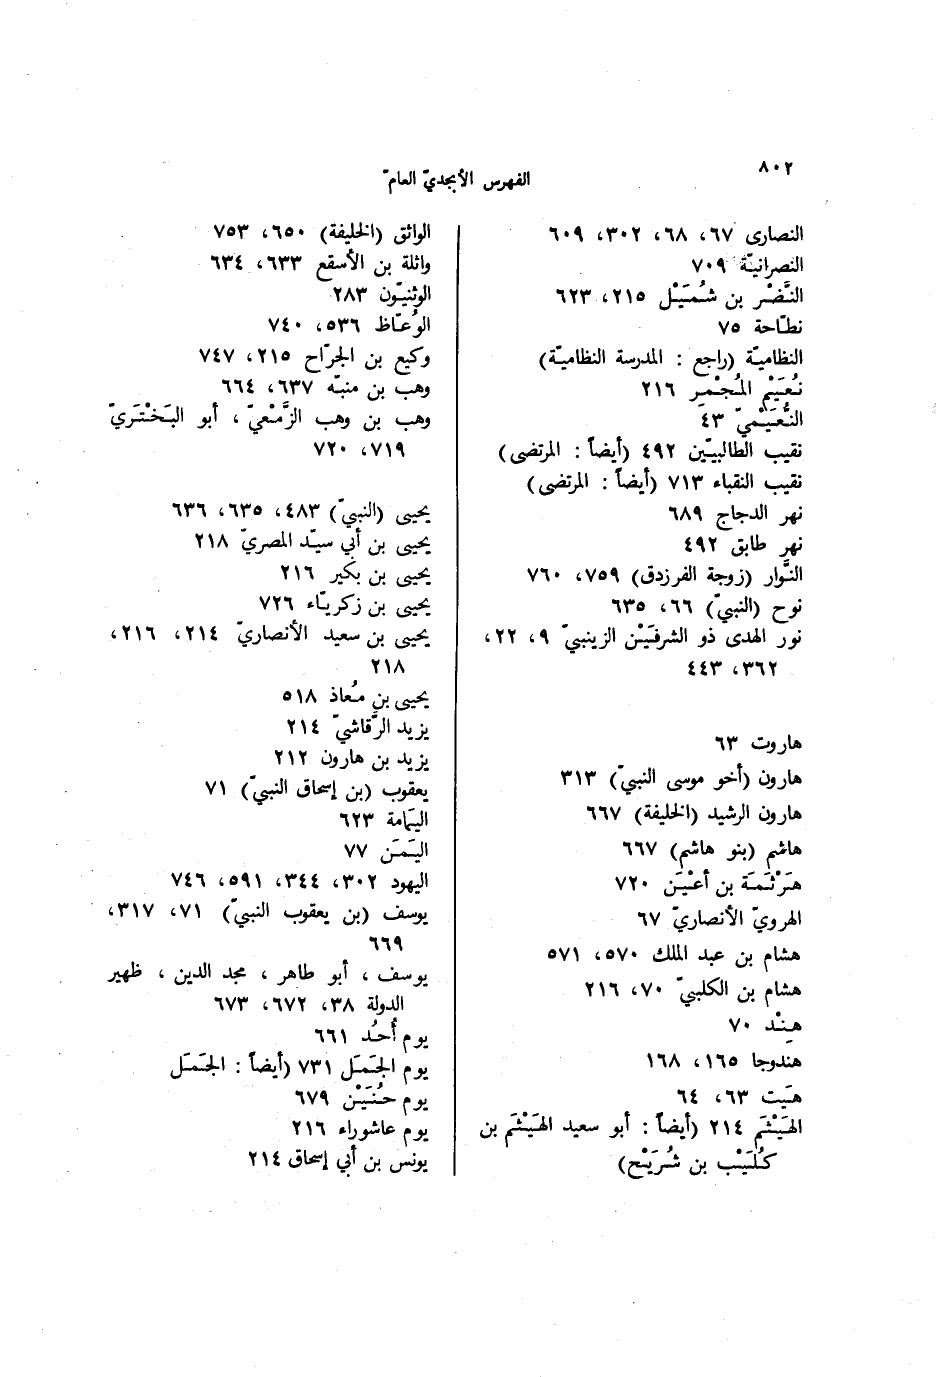 ٨٠٢
الفهرس الأبجديّ العامّ
النصارى ٦٧، ٦٨، ٣٠٢، ٦٠٩
النصرانيّة ٧٠٩
النَّضْر بن شُمَيْل ٢١٥، ٦٢٣
نطّاحة ٧٥
النظاميّة (راجع : المدرسة النظاميّة)
نُعَيْم المُجْمِر ٢١٦
النُّعَيْميّ ٤٣
نقيب الطالبيّين ٤٩٢ (أيضاً : المرتضى)
نقيب النقباء ٧١٣ (أيضاً : المرتضى)
نهر الدجاج ٦٨٩
نهر طابق ٤٩٢
النَّوار (زوجة الفرزدق) ٧٥٩، ٧٦٠
نوح (النبيّ) ٦٦، ٦٣٥
نور الهدى ذو الشرفَيْن الزينبيّ ٩، ٢٢،
٣٦٢، ٤٤٣
هاروت ٦٣
هارون (أخو موسى النبيّ) ٣١٣
هارون الرشيد (الخليفة) ٦٦٧
هاشم (بنو هاشم) ٦٦٧
هَرْثَمَة بن أعْيَن ٧٢٠
الهرويّ الأنصاريّ ٦٧
هشام بن عبد الملك ٥٧٠، ٥٧١
هشام بن الكلبيّ ٧٠، ٢١٦
هِنْد ٧٠
هندوجا ١٦٥، ١٦٨
هَيت ٦٣، ٦٤
الهَيْثَم ٢١٤ (أيضاً : أبو سعيد الهَيْثَم بن
كُلَيْب بن شُرَيْح)
الواثق (الخليفة) ٦٥٠، ٧٥٣
واثلة بن الأسقع ٦٣٣، ٦٣٤
الوثنيّون ٢٨٣
الوُعّاظ ٥٣٦، ٧٤٠
وكيع بن الجرّاح ٢١٥، ٧٤٧
وهب بن منبّه ٦٣٧، ٦٦٤
وهب بن وهب الزَّمْعيّ ، أبو البَخْتَريّ
٧١٩، ٧٢٠
يحيى (النبيّ) ٤٨٣، ٦٣٥، ٦٣٦
يحيى بن أبي سيّد المصريّ ٢١٨
يحيى بن بكير ٢١٦
يحيى بن زكريّاء ٧٢٦
يحيى بن سعيد الأنصاريّ ٢١٤، ٢١٦،
٢١٨
يحيى بن مُعاذ ٥١٨
يزيد الرَّقاشيّ ٢١٤
يزيد بن هارون ٢١٢
يعقوب (بن إسحاق النبيّ) ٧١
اليَمامة ٦٢٣
اليَمَن ٧٧
اليهود ٣٠٢، ٣٤٤، ٥٩١، ٧٤٦
يوسف (بن يعقوب النبيّ) ٧١، ٣١٧،
٦٦٩
يوسف ، أبو طاهر ، مجد الدين ، ظهير
الدولة ٣٨، ٦٧٢، ٦٧٣
يوم أُحُد ٦٦١
يوم الجَمَل ٧٣١ (أيضاً : الجَمَل
يوم حُنَيْن ٦٧٩
يوم عاشوراء ٢١٦
يونس بن أبي إسحاق ٢١٤